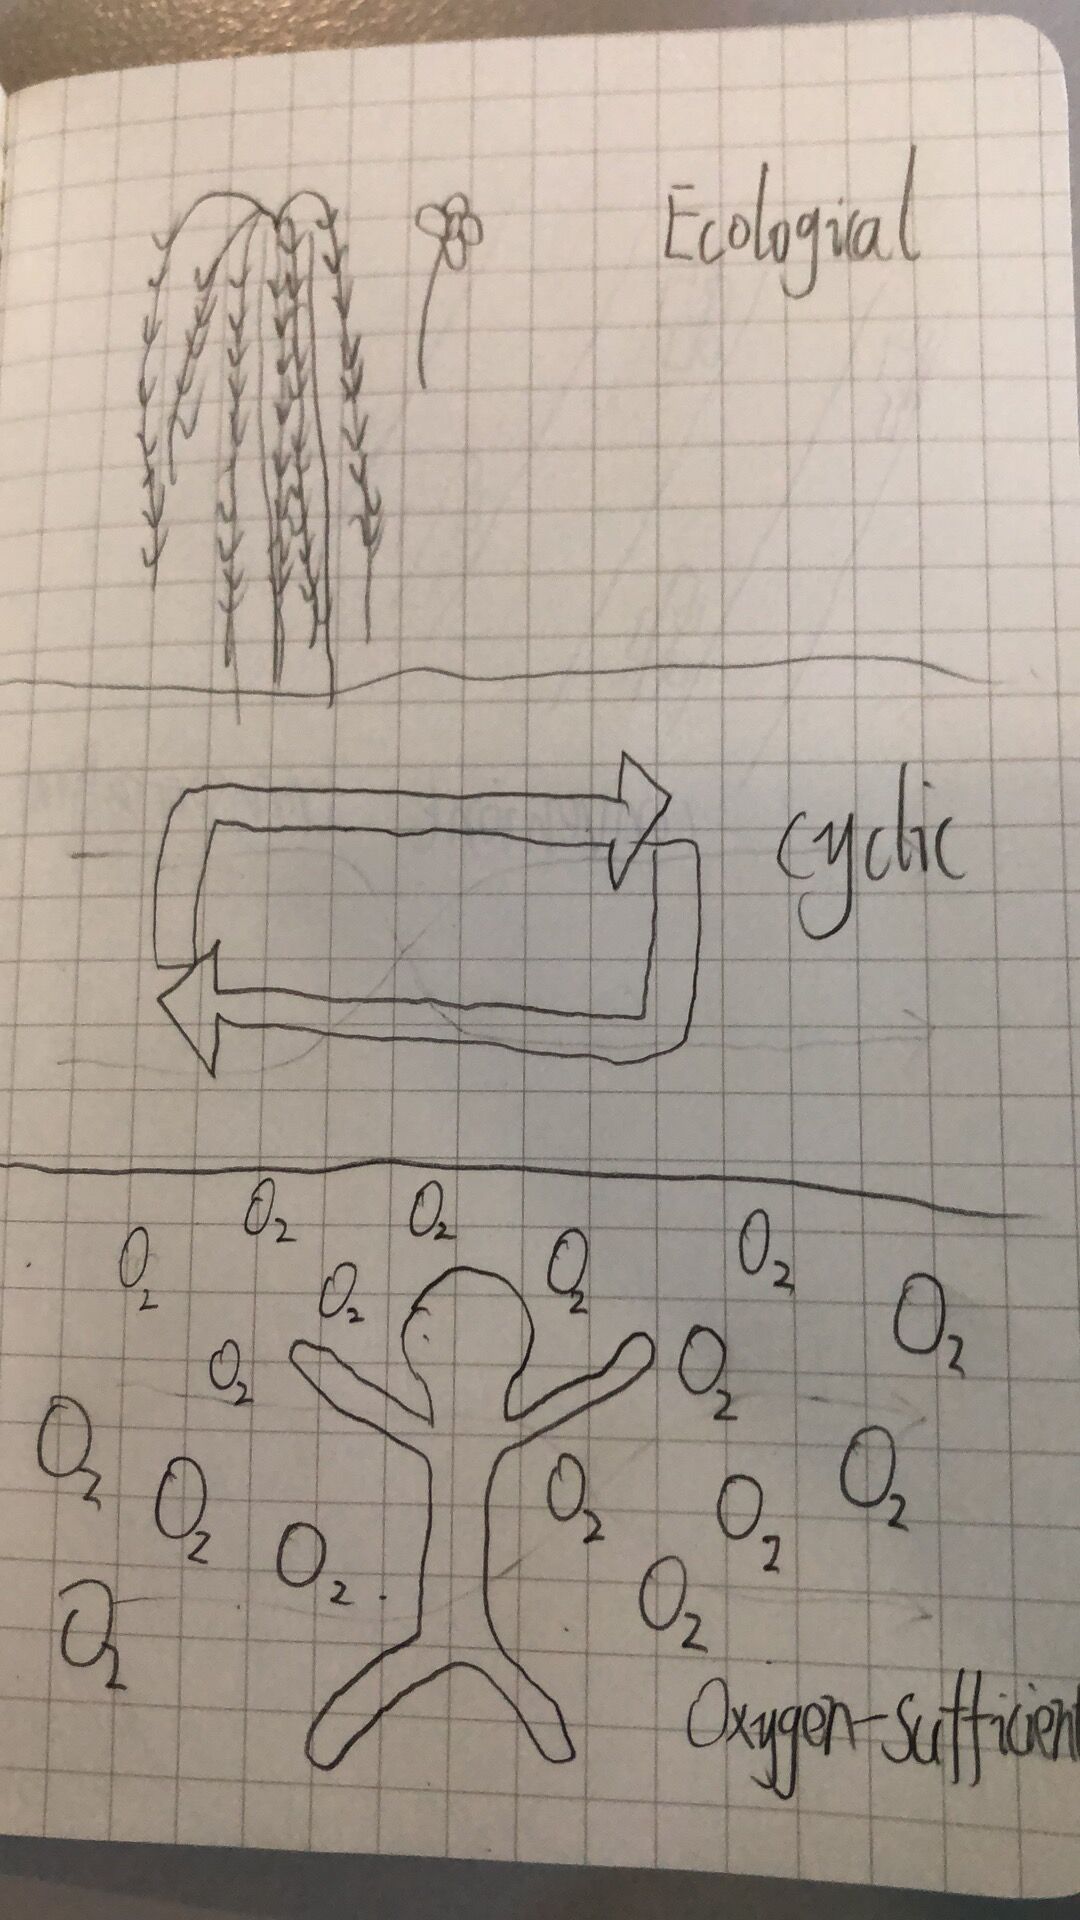 Ecological
cyclic
O2 O2
O2 O2 O2 O2
O2 O2
O2 O2
O2 O2 O2
O2 O2 O2
O2 O2
Oxygen-sufficient